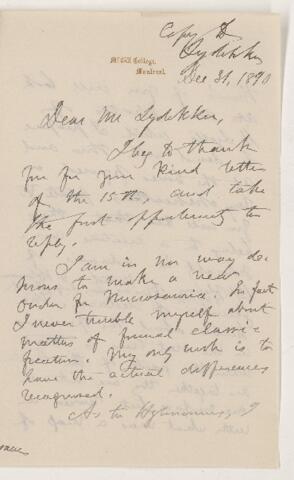 Copy to
Lydekker
McGill College,
Montreal.
Dec 31, 1890
Dear Mr Lydekker,
I beg to thank
you for your kind letter
of the 15th, and take
the first opportunity to
reply.
I am in no way de-
sirous to make a new
Order for Microsauria. In fact
I never trouble myself about
matters of formal classi-
fication. My only wish is to
have the actual differences
recognised.
As to Hylonomus, I